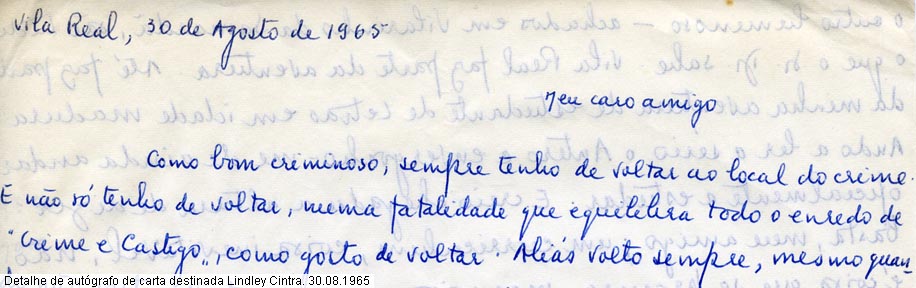 Vila Real, 30 de Agosto de 1965
Meu caro amigo
Como bom criminoso, sempre tenho de voltar ao local do crime.
E não só tenho de voltar, numa fatalidade que equilibra todo o enredo de
"Crime e Castigo", como gosto de voltar. Aliás volto sempre, mesmo quan-
Detalhe de autógrafo de carta destinada Lindley Cintra. 30.08.1965